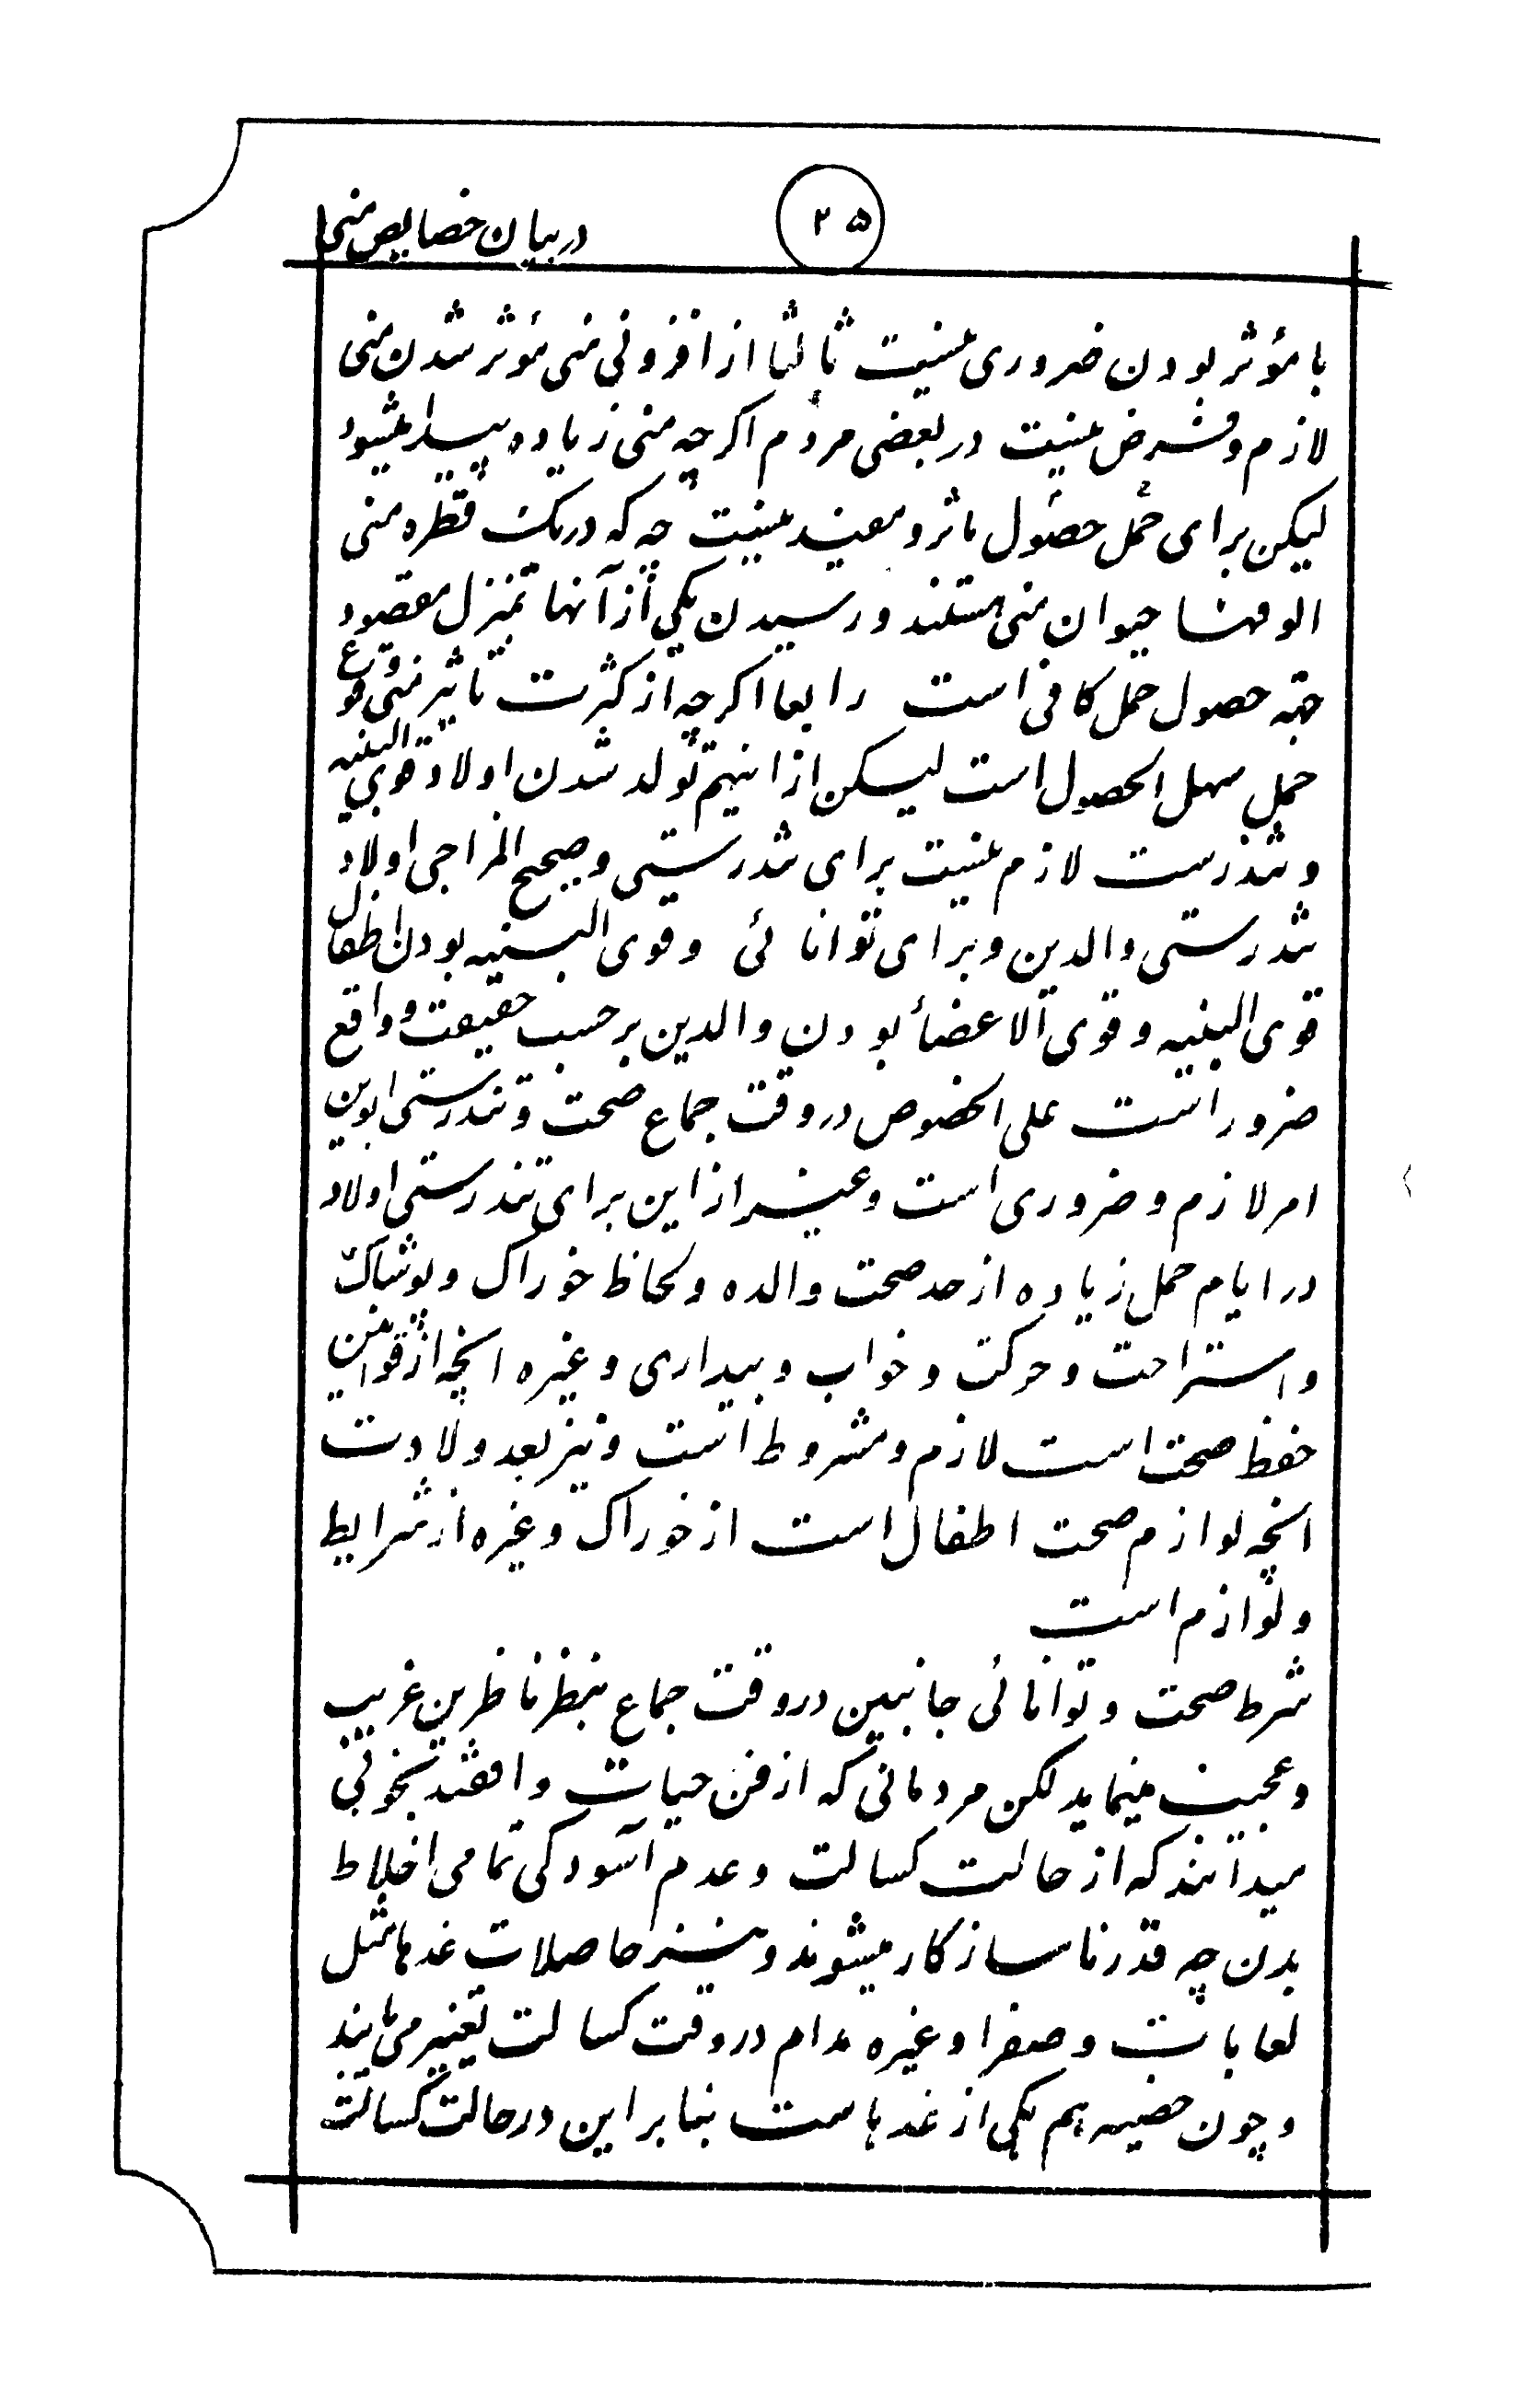 ۲۵
در بیان خصایص منی
با مؤثر بودن ضروری نیست ثالثا از افزونی منی مؤثر شدن منی
لازم و فرض نیست در بعضی مردم اکرچه منی زیاده پیدا میشود
لیکن برای حمل حصول مأثر و مفید نیست چه که در یک قطره منی
الوفها حیوان منی هستند و رسیدن یکی از آنها بمنزل مقصود
جهة حصول حمل کافی است رابعا اکرچه از کثرت تأثیر منی وقوع
حمل سهل الحصول است لیکن از اینهم تولد شدن اولاد قوی البنیه
و تندرست لازم نیست برای تندرستی و صحیح المزاجی اولاد
تندرستی والدین و برای توانائی و قوی البنیه بودن اطفال
قوی البنیه و قوی الاعضأ بودن والدین برحسب حقیقت و واقع
ضرور است علی الخصوص در وقت جماع صحت و تندرستی ابوین
امر لازم و ضروری است و غیر از این برای تندرستی اولاد
در ایام حمل زیاده از حد صحت والده و لحاظ خوراک و پوشاک
و استراحت و حرکت و خواب و بیداری و غیره انچه از قوانین
حفظ صحت است لازم و مشروط است و نیز بعد ولادت
انچه لوازم صحت اطفال است از خوراک و غیره از شرایط
و لوازم است
شرط صحت و توانائی جانبین در وقت جماع بنظر ناظرین غریب
و عجیب مینماید لکن مردمانی که از فن حیات واقفند بخوبی
میدانند که از حالت کسالت و عدم آسودکی تمامی اخلاط
بدن چه قدر ناسازکار میشوند و نیز حاصلات غدها مثل
لعابات و صفرا و غیره مدام در وقت کسالت تغییر می یابند
و چون خصیه هم یکی از غدهاست بنابراین در حالت کسالت